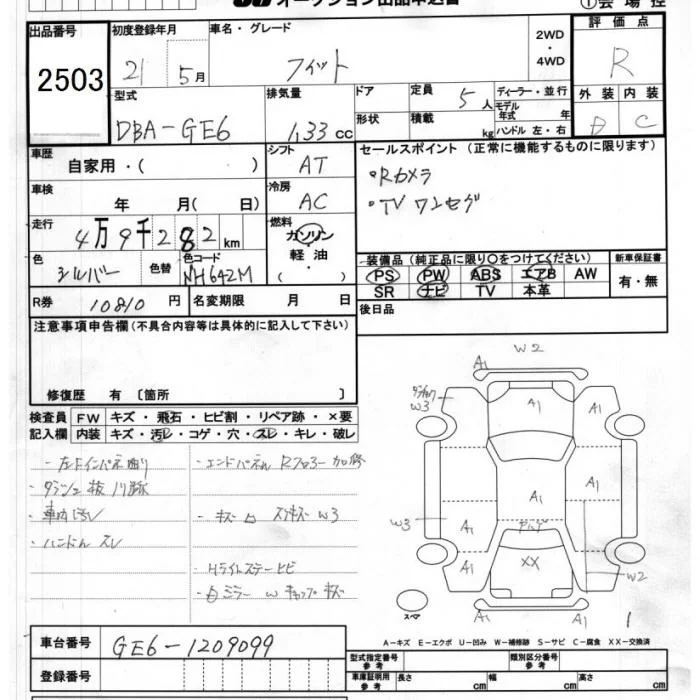 オークション出品申込書
①会場控
出品番号
2503
初度登録年月
21 5月
車名・グレード
フィット
2WD
・
4WD
評価点
R
外装 内装
D C
型式
DBA-GE6
排気量
1.33 cc
ドア
形状
定員
5人
積載
kg
ディーラー・並行
モデル
年式 年
ハンドル 左・右
車歴
自家用・( )
シフト
AT
車検
年 月( 日)
冷房
AC
走行
4万9千282km
燃料
ガソリン
軽油
( ・ )
色
シルバー
色替
色コード
NH642M
R券 10810円
名変期限 月 日
セールスポイント (正常に機能するものに限ります)
・Rカメラ
・TV ワンセグ
装備品 (純正品に限り○をつけてください)
新車保証書
PS PW ABS エアB AW
SR ナビ TV 本革
有・無
後日品
注意事項申告欄(不具合内容等は具体的に記入して下さい)
修復歴 有 〔箇所 〕
検査員
記入欄
FW キズ・飛石・ヒビ割・リペア跡・×要
内装 キズ・汚レ・コゲ・穴・スレ・キレ・破レ
・左Fインパネ曲り
・エンドパネル Rフロアー加修
・車内汚レ
・ハンドル スレ
・キズ 凸 スリキズ W3
・Hライトステー ヒビ
W2
A1
W3
A1
A1
A1
A1
W3
A1
A1
A1
XX
W2
スペア
A1
1
A-キズ E-エクボ U-凹み W-補修跡 S-サビ C-腐食 XX-交換済
車台番号 GE6-1209099
登録番号
型式指定番号
参考
類別区分番号
参考
車庫証明用
参考
長さ cm
幅 cm
高さ cm